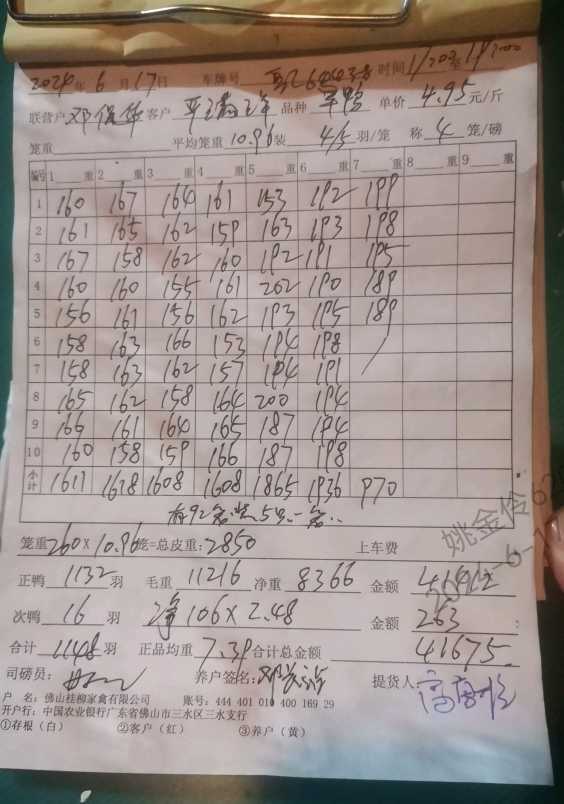 2024年6月17日 车牌号 时间
联营户 邓保华 客户 品种 单价 4.95元/斤
笼重 平均笼重 10.96 装 4/5 羽/笼 称 4 笼/磅
编号 1 重 2 重 3 重 4 重 5 重 6 重 7 重 8 重 9 重
1 160 167 164 161 153 192 199
2 161 165 162 159 163 193 198
3 167 158 162 160 192 191 195
4 160 160 155 161 202 190 189
5 156 161 156 162 193 195 189
6 158 163 166 153 194 198
7 158 163 162 157 194 191
8 165 162 158 164 200 194
9 165 161 164 165 187 194
10 160 158 159 166 187 198
小计 1611 1618 1608 1608 1865 1936 970
笼重 260×10.96 笼=总皮重: 2850 上车费
正鸭 1132 羽 毛重 11216 净重 8366 金额
次鸭 16 羽 净 106×2.48 金额 263
合计 1148 羽 正品均重 7.39 合计总金额 41675
司磅员: 养户签名: 提货人
户 名: 佛山桂柳家禽有限公司 账号: 444 401 010 400 169 29
开户行: 中国农业银行广东省佛山市三水区三水支行
①存根（白） ②客户（红） ③养户（黄）
姚金伶